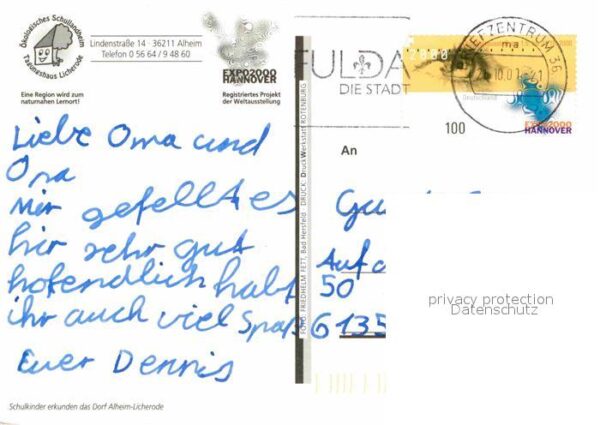 Ökologisches Schullandheim
Tagungshaus Licherode
Lindenstraße 14 · 36211 Alheim
Telefon 0 56 64 / 9 48 60
Eine Region wird zum
naturnahen Lernort!
EXPO2000
HANNOVER
Registriertes Projekt
der Weltausstellung
FULDA
DIE STADT
BRIEFZENTRUM 36
ma
Deutschland
100
EXPO2000
HANNOVER
Liebe Oma und
Opa
Mir gefelltes
hir sehr gut
hofendlich habt
ihr auch viel Spaß
Euer Dennis
An
Auf
50
6135
FOTO: FRIEDHELM FETT, Bad Hersfeld · DRUCK: DruckWerkstatt ROTENBURG
privacy protection
Datenschutz
Schulkinder erkunden das Dorf Alheim-Licherode